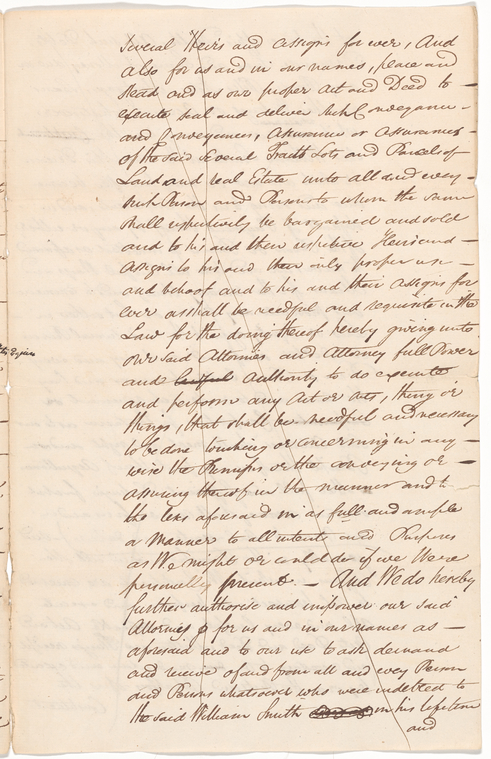 several Heirs and assigns for ever, And
also for us and in our names, place and
stead and as our proper Act and Deed to —
execute seal and deliver such Conveyance —
and Conveyances, Assurance or Assurances
of the said several Tracts Lots and Parcels of
Land and real Estate unto all and every —
such Person and Persons to whom the same
shall respectively be bargained and sold
and to his and their respective Heirs and —
assigns to his and their only proper use —
and behoof and to his and their Assigns for
ever as shall be needful and requisite in the
Law for the doing thereof hereby giving unto
our said Attornies and Attorney full Power
and lawful authority to do execute
and perform any Act or Acts, thing or
things, that shall be needful and necessary
to be done touching or concerning in any —
wise the Premises or the conveying or —
assuring thereof in the manner and
the aforesaid in as full and ample
a Manner to all intents and Purposes
as We might or could do if we were
personally present. — And We do hereby
further authorise and impower our said
Attornies for us and in our names as —
aforesaid and to our use to ask demand
and receive of and from all and every Person
and Persons whatsoever who were indebted to
the said William Smith in his lifetime
and